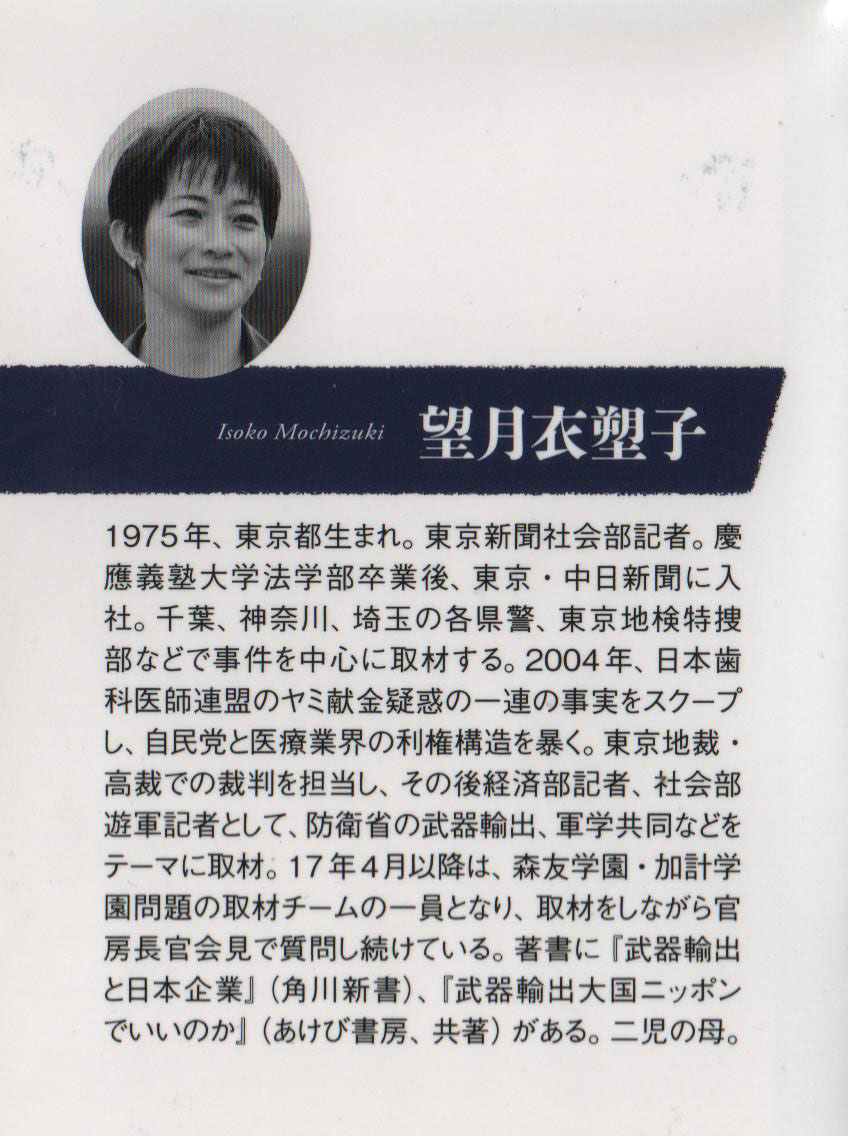 Isoko Mochizuki 望月衣塑子
1975年、東京都生まれ。東京新聞社会部記者。慶
應義塾大学法学部卒業後、東京・中日新聞に入
社。千葉、神奈川、埼玉の各県警、東京地検特捜
部などで事件を中心に取材する。2004年、日本歯
科医師連盟のヤミ献金疑惑の一連の事実をスクープ
し、自民党と医療業界の利権構造を暴く。東京地裁・
高裁での裁判を担当し、その後経済部記者、社会部
遊軍記者として、防衛省の武器輸出、軍学共同などを
テーマに取材。17年4月以降は、森友学園・加計学
園問題の取材チームの一員となり、取材をしながら官
房長官会見で質問し続けている。著書に『武器輸出
と日本企業』（角川新書）、『武器輸出大国ニッポン
でいいのか』（あけび書房、共著）がある。二児の母。